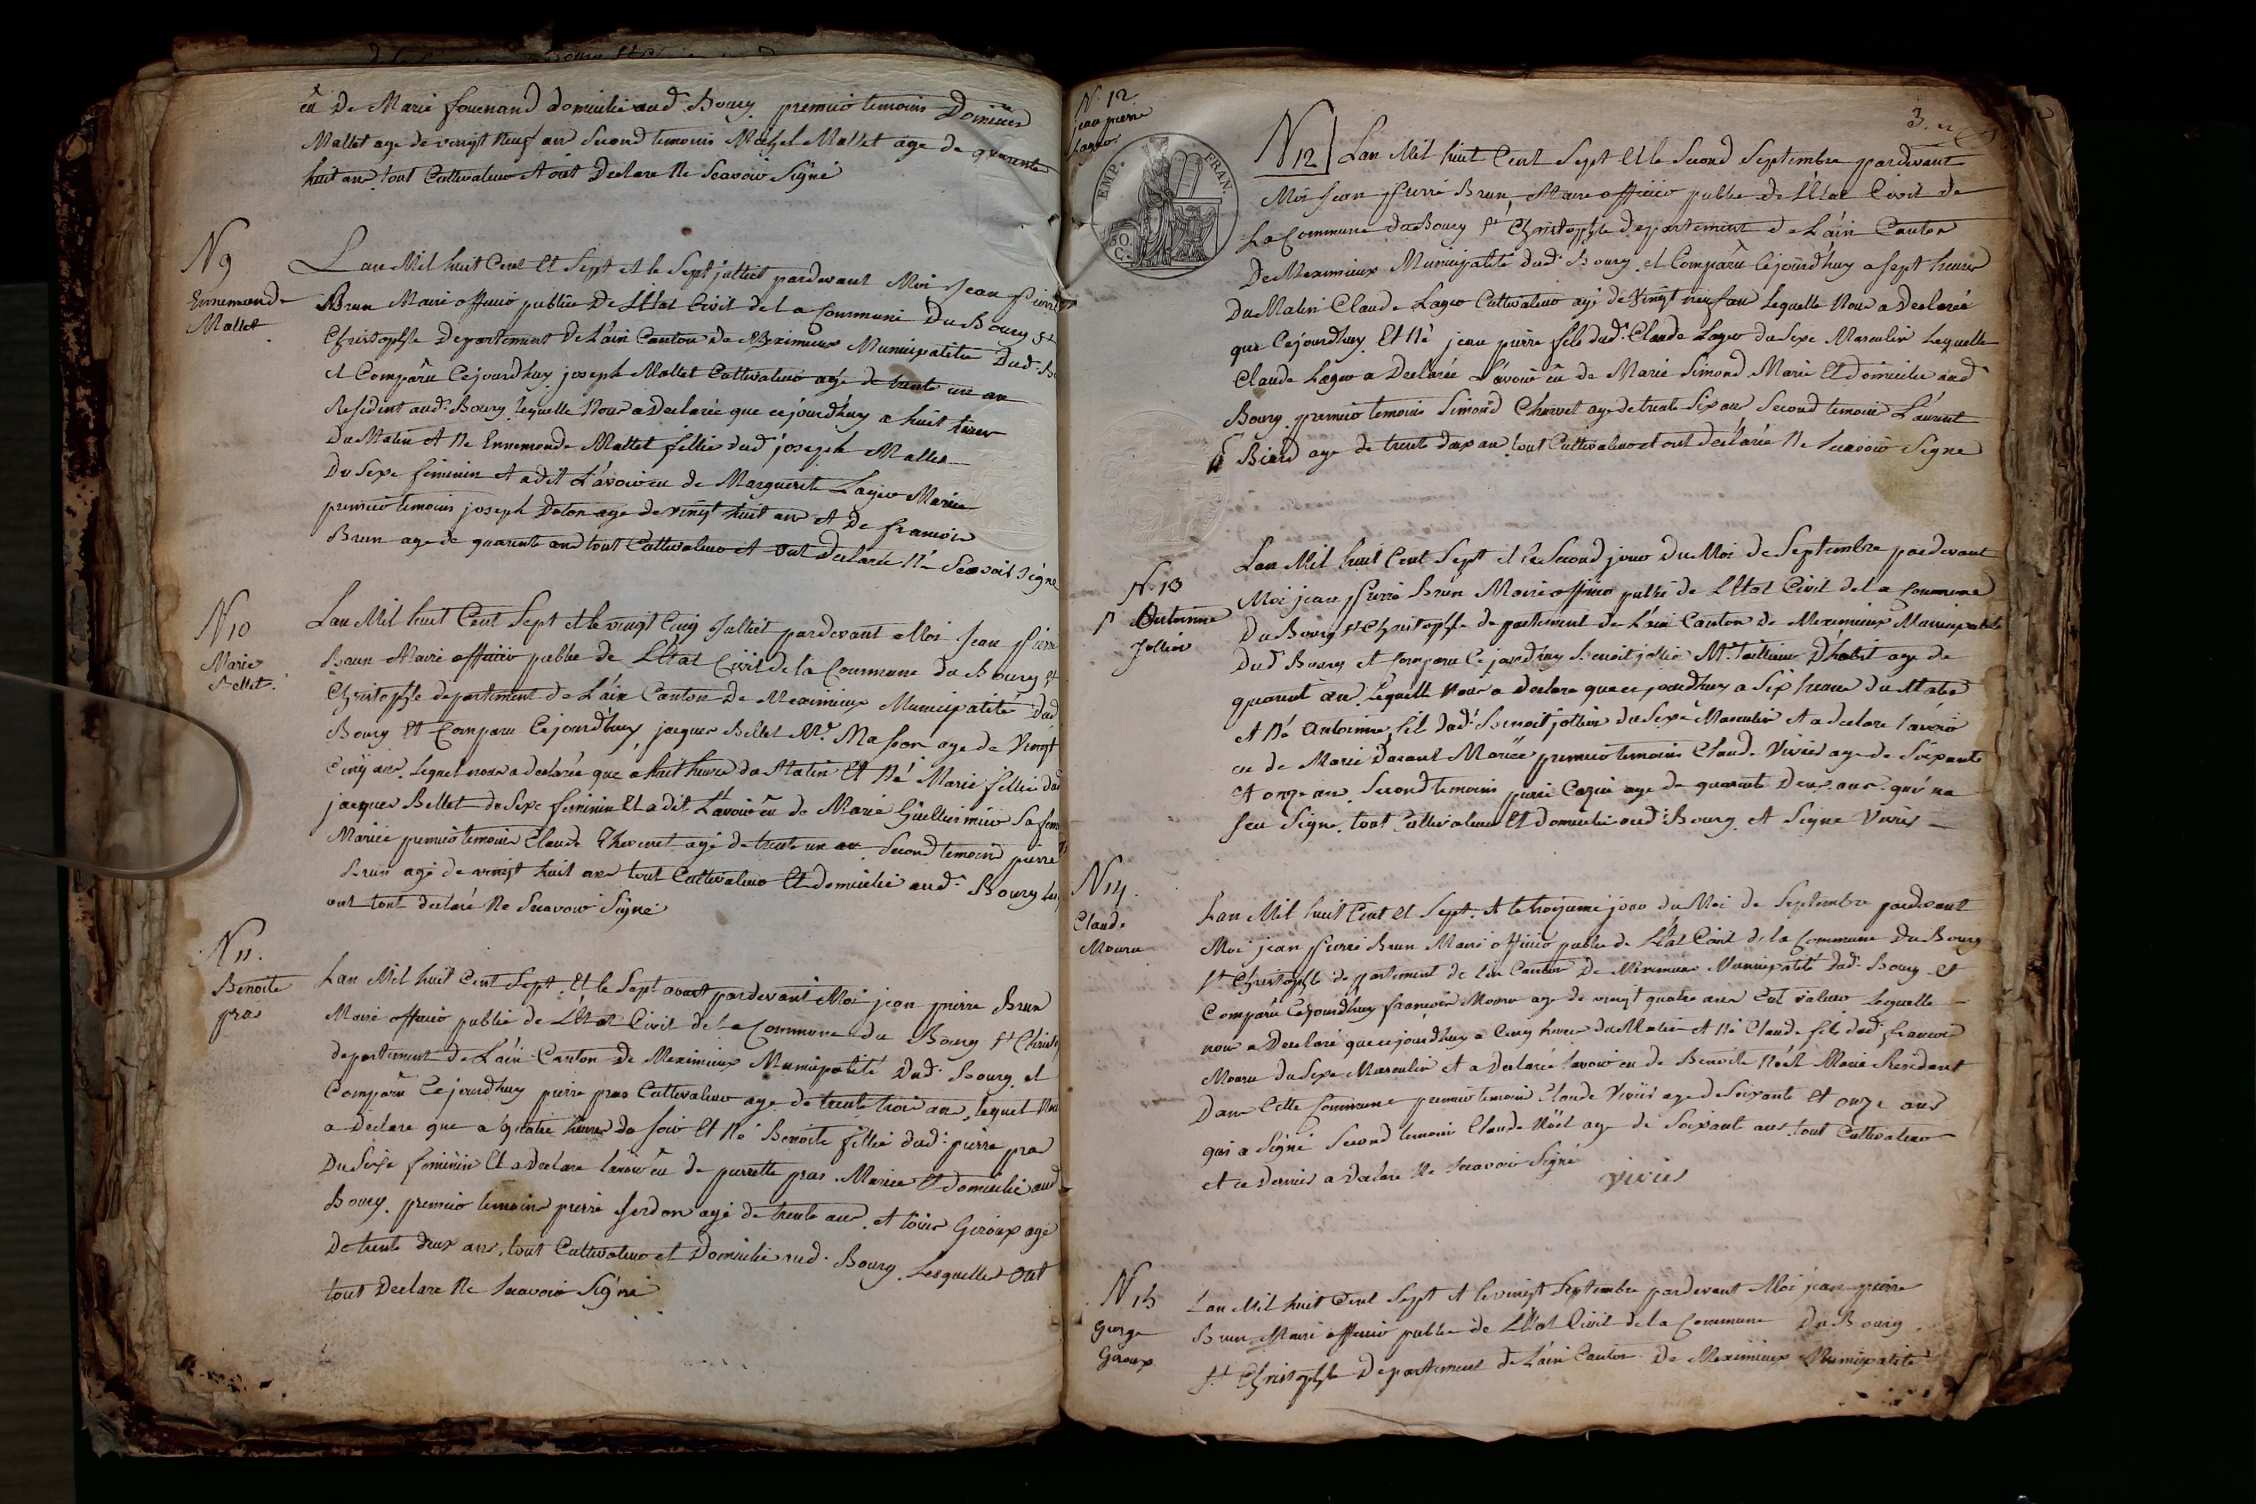 eû De Marie fournand domicilié aud. Bourg premier temoins Dominer
Mallet age de vingt neuf an Second temoins Michel Mallet age de quarante
huit an tout Cultivateur et ont Declare Ne Scavoir Signé
N 9
Ennemonde
Mallet
Lan Mil huit Cent Et Sept et le Sept julliet pardevant Moi Jean Pierre
Brun Maire officier publie De L'Etat Civil de La Commune Du Bourg St
Christophle Departement De L'ain Canton De Meximieux Municipalitée Dud. Bo
et Comparû Cejourdhuy joseph Mallet Cultivateur agé de trente un an
Resident aud. Bourg lequelle Nous a Declarée que cejourdhuy a huit heure
Du Matin et Ne Ennemonde Mallet fillie dud joseph Mallet
Du Sexe feminin et a dit L'avoir eu de Marguerite Lager Mariée
premier temoins joseph Deton age de vingt huit an et De francois
Brun age de quarante ans tout Cultivateur et ont Declarée Ne Scavoit Signe
N 10
Marie
Bellet.
Lan Mil huit Cent Sept et le vingt Cinq Julliet pardevant Moi Jean Pierre
Brun Maire officier publie de L'Etat Civil de la Commune du Bourg St
Christophle departement de L'ain Canton De Meximieux Municipalité Dud.
Bourg Et Comparu Cejourdhuy jacques Bellet Mre. Masson age de Vingt
Cinq ans. Lequel nous a declarée que a huit heure du Matin Et Né Marie fillie dud
jacques Bellet du Sexe feminin Et a dit L'avoir eû de Marie Guillierminer Sa fem
Mariée premier temoins Claude Thevenet agé de trente un an Second temoins pierre
Brun agé de vingt huit ans tout Cultivateur Et domicilié aud. Bourg Les
ont tout declaré Ne Scavoir Signé
N 11.
Benoite
pras
Lan Mil huit Cent Sept. Et le Sept avout pardevant Moi jean pierre Brun
Maire officier publie de L'Etat Civil de La Commune du Bourg St Christ
departement de L'ain Canton De Meximieux Municipalité Dud. Bourg. et
Comparû Cejourdhuy pierre pras Cultivateur age de trente trois ans, lequel Nou
a Declare que a quatre heures du Soir Et Né Benoite fillie dud. pierre pra
Du Sexe feminin Et a Declare lavoir eû de pierrette pras. Mariée Et domicilié aud
Bourg. premier temoins pierre ferdon agé de trente ans. et Louis Giroux agé
De trente deux ans. tout Cultivateur et Domicilié aud. Bourg. Lesquelles ont
tout Declare Ne Scavoir Signé
N. 12
jean pierre
Lager
EMP. FRAN.
50 C.
3.
N 12 Lan Mil huit Cent Sept Et le Second Septembre pardevant
Moi Jean Pierre Brun, Maire officier publie de L'Etat Civil de
La Commune du Bourg St Christophle departement de L'ain Canton
De Meximieux Municipalité dud. Bourg. et Comparû Cejourdhuy a Sept heure
Du Matin Claude Lager Cultivateur agé de Vingt neuf an lequelle Nous a Declarée
que Cejourdhuy. Et Né jean pierre fils dud. Claude Lager du Sexe Masculin Lequelle
Claude Lager a Declarée L'avoir eû de Marie Simond Marie Et domicilie aud
Bourg. premier temoins Simond Charvet age de trente Six ans, Second temoin Laurent
Biard age de trente deux an, tout Cultivateur et ont declarée Ne Scavoir Signe
N. 13
Antoinne
Jollier
Lan Mil huit Cent Sept et le Second jour Du Moi de Septembre pardevant
Moi jean Pierre Brun Maire officier publie de L'Etat Civil de La Commune
Du Bourg St Christophle departement de L'ain Canton de Meximieux Municipalité
Dud. Bourg et Comparu Cejourdhuy Benoit jollier Mre. tailleur D'habit age de
quarant an, Lequelle Nous a Declare que cejourdhuy a Six heure du Matin
et Né Antoinne, fil dud. Benoit jollier du Sexe Masculin et a declare lavoir
eu de Marie Darant Mariée premier temoins Claude Vivier age de Soixante
et onze an Second temoins pierre Cozier age de quarante Deux ans. qui na
Seu Signe. tout Cultivateur Et domicilie aud. Bourg. et Signe Vivies
N 14.
Claude
Mouru
Lan Mil huit Cent Et Sept. et le troizieme jour du Moi de Septembre pardevant
Moi jean Pierre Brun Maire officier publie de L'Etat Civil de la Commune Du Bourg
St Christophle departement de L'ain Canton De Meximieux Municipalité dud. Bourg. et
Comparu Cejourdhuy francois Mouru age de vingt quatre ans Cultivateur Lequelle
nous a Declaré que cejourdhuy a Cinq heure du Matin et Né Claude fils dud. francois
Mouru du Sexe Masculin et a declarée lavoir eu de Benoite Noël Mariée Residant
Dans Cette Commune premier temoin Claude Vivier age de Soixante Et onze ans
qui a Signé Second temoin Claude Noël age de Soixante ans, tout Cultivateur
et ce dernier a declare Ne Scavoir Signé
vivies
N 15
George
Giroux
Lan Mil huit Cent Sept et le vingt Septembre pardevant Moi jean pierre
Brun Maire officier publie de L'Etat Civil de la Commune Du Bourg
St Christophle Departement de L'ain Canton De Meximieux Municipalité